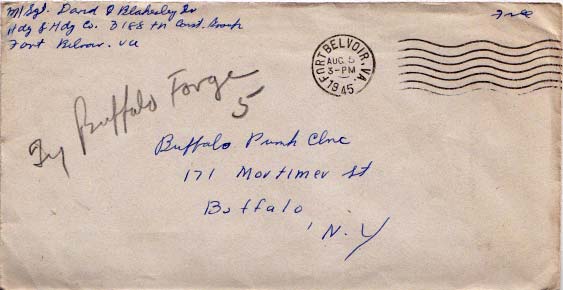 M/Sgt. David P Blakesley Sr
Hdq & Hdq Co. 3188 th Const. Group
Fort Belvoir. Va
Free
FORT BELVOIR, VA.
AUG 5
3-PM
1945
Try Buffalo Forge
5
Buffalo Punh Clnc
171 Mortimer St
Buffalo
N.Y